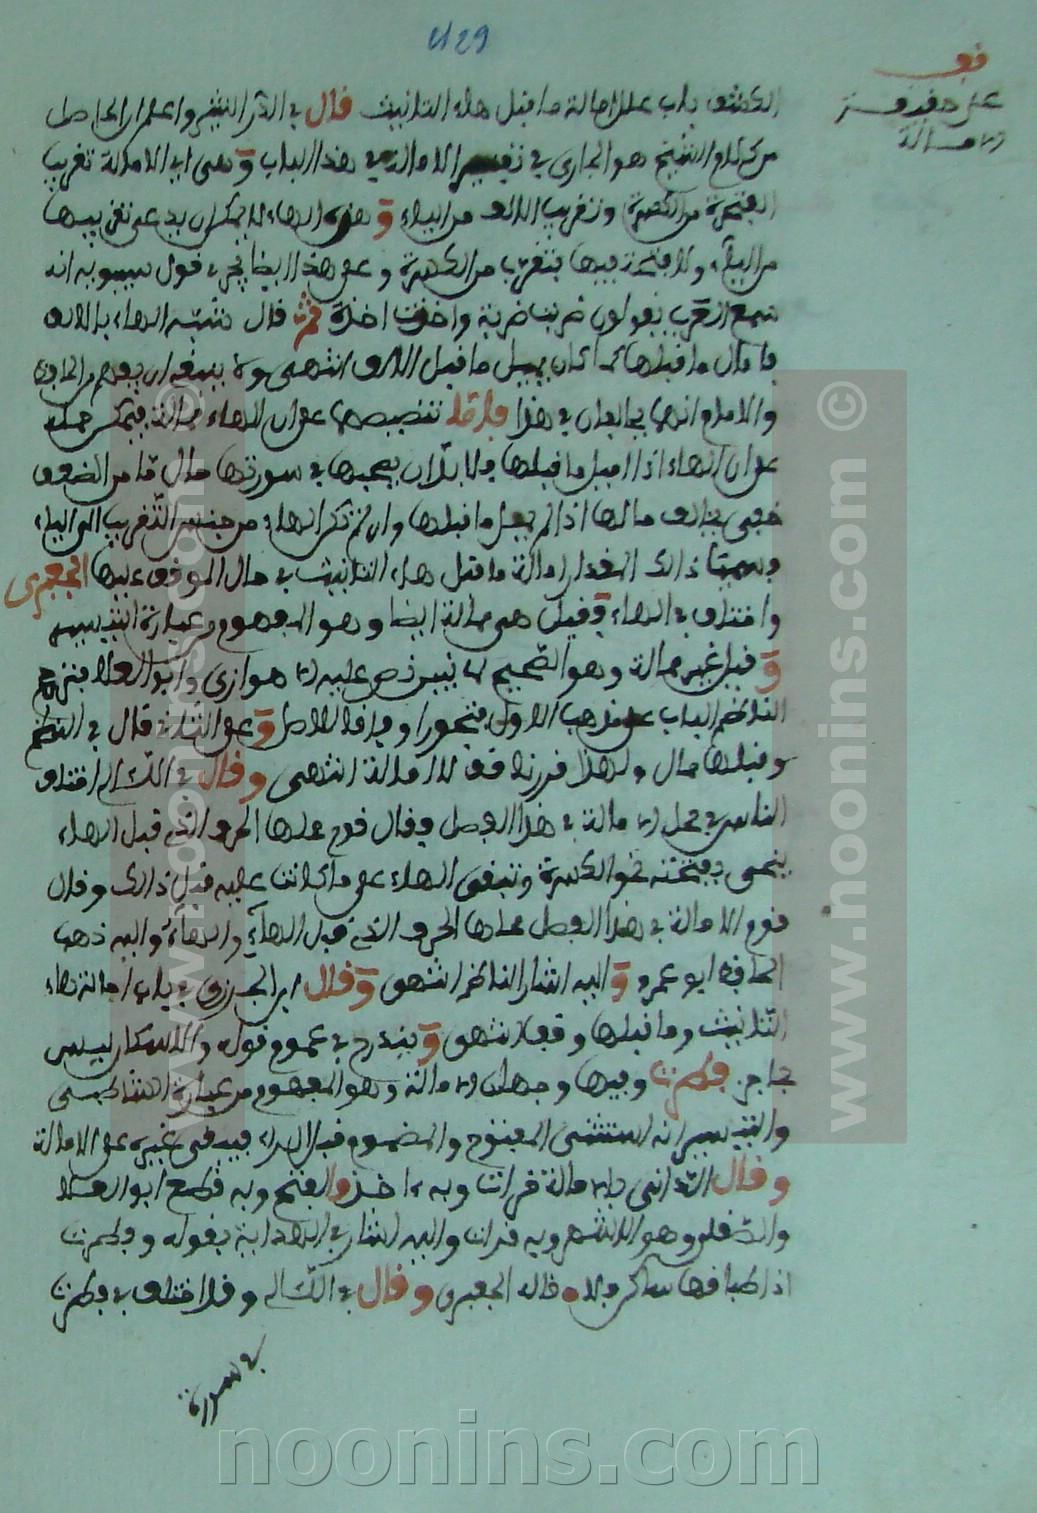 429
قف
على حقيقة
الامالة
الكشف باب علل امالة ما قبل هاء التانيث قال في الدر النثير واعلم ان الحاصل
من كلام الشيخ هو الجاري في تفسير الامالة في هذا الباب وهي ان الامالة تقريب
الفتحة من الكسرة وتقريب الالف من الياء وهذه الهاء لا يمكن ان يدعى تقريبها
من الياء ولا فتحة فيها فتقرب من الكسرة وعلى هذا ايضا يجري قول سيبويه انه
سمع العرب يقولون ضربت ضربة واخذت اخذة ثم قال شبه الهاء بالالف
فامال ما قبلها كما كان يميل ما قبل الالف انتهى ولا ينبغي ان يفهم من الحافظ
والامام انهما يخالفان في هذا فاما تنصيصهما على ان الهاء ممالة فيمكن حمله
على ان الهاء اذا اميل ما قبلها فلا بد ان يصحبها في صورتها حال ما من الضعف
خفي يخالف حالها اذا لم يمل ما قبلها وان لم تكن الهاء من جنس التقريب الى الياء
وسميا ذلك المقدار امالة ما قبل هاء التانيث في حال الوقف عليها الجعبري
واختلف في الهاء فقيل هي ممالة ايضا وهو المفهوم من عبارة التيسير
وقيل غير ممالة وهو الصحيح نص عليه الاهوازي وابو العلا
الناظم الباب على مذهب الاول فتجوزا وعلى الثاني قال في النظم
وقبلها ممال ولهذا الامالة انتهى وقال في اللئالي اختلف
الناس في محل الامالة في هذا الفصل فقال قوم محلها الحرف الذي قبل الهاء
ينحى بفتحته نحو الكسرة وتبقى الهاء على ما كانت عليه قبل ذلك وقال
قوم الامالة في هذا الفصل محلها الحرف الذي قبل الهاء والهاء واليه ذهب
الحافظ ابو عمرو واليه اشار الناظم انتهى وقال ابن الجزري في باب امالة هاء
التانيث وما قبلها وقفا انتهى ويندرج في عموم قوله والاسكان ليس
بحاجز فطرت وفيها وجهان الامالة وهو المفهوم من عبارة الشاطبي
والتيسير انه استثنى المفتوح والمضموم قبل الراء فبقي غيره على الامالة
وقال الداني بالامالة قرات وبه اخذ والفتح وبه قطع ابو العلا
والصقلي وهو الاشهر وبه قرات واليه اشار في بقوله وفطرت
قاله الجعبري وقال في اللئالي وقد اختلف في فطرت
في سورة
noonins.com
www.noonins.com ©
www.noonins.com ©